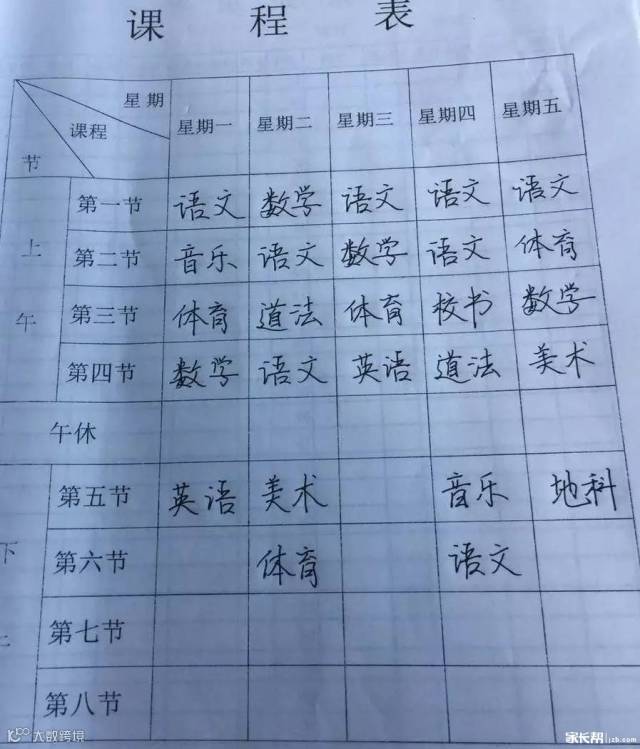 课 程 表
星期
课程
节
星期一 星期二 星期三 星期四 星期五
上午
第一节 语文 数学 语文 语文 语文
第二节 音乐 语文 数学 语文 体育
第三节 体育 道法 体育 校书 数学
第四节 数学 语文 英语 道法 美术
午休
下
第五节 英语 美术 音乐 地科
第六节 体育 语文
第七节
第八节
大数跨境
家长帮 jzb.com